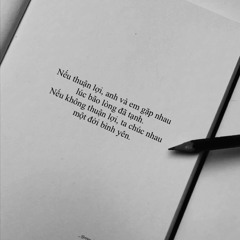 Nếu thuận lợi, anh và em gặp nhau
lúc bão lòng đã tạnh.
Nếu không thuận lợi, ta chúc nhau
một đời bình yên.